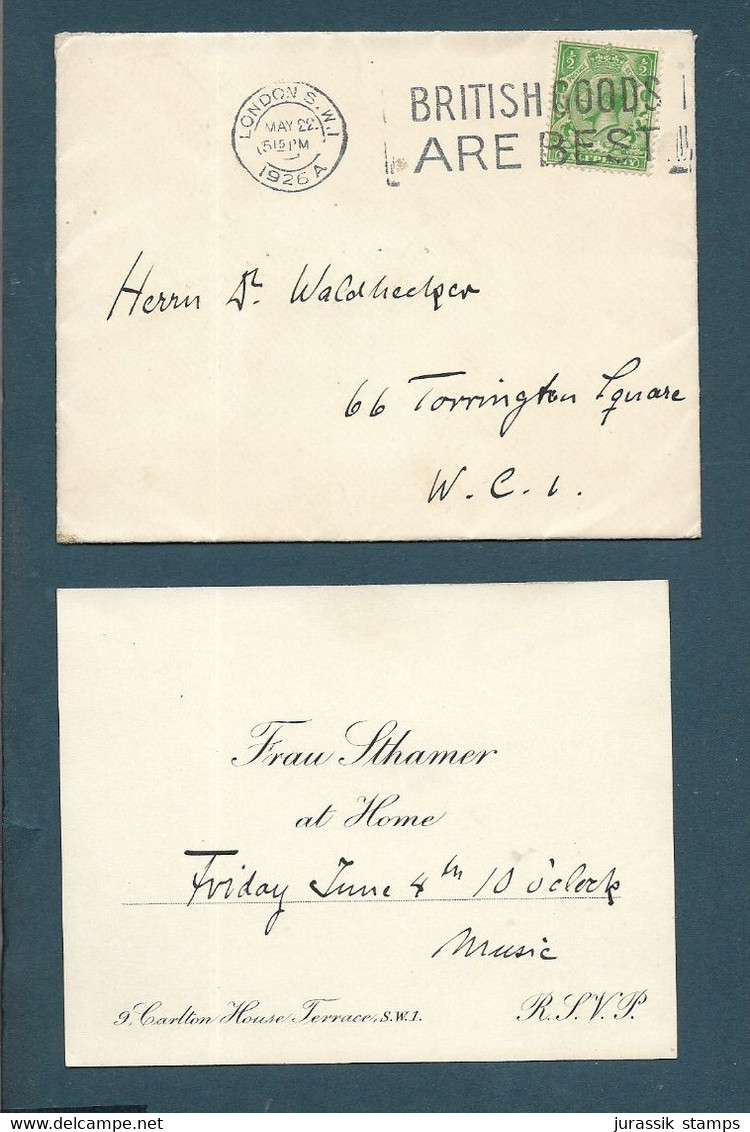 LONDON S.W.1
MAY 22
515 PM
1926 A
BRITISH GOODS
ARE BEST
½ ½
Herrn Dr. Waldhecker
66 Torrington Square
W.C.1.
Frau Sthamer
at Home
Friday June 4th 10 o'clock
Music
9, Carlton House Terrace, S.W.1.
R.S.V.P.
www.delcampe.net
jurassik stamps